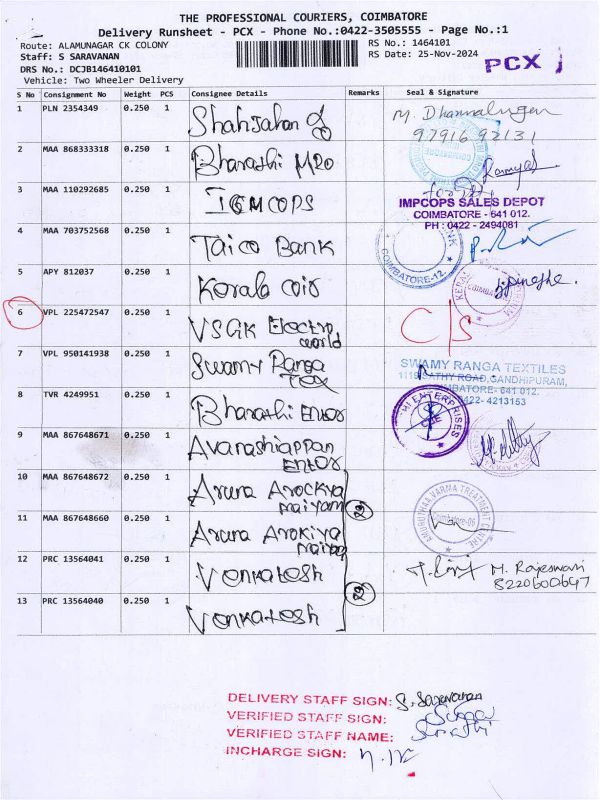 THE PROFESSIONAL COURIERS, COIMBATORE
Delivery Runsheet - PCX - Phone No.:0422-3505555 - Page No.:1
Route: ALAMUNAGAR CK COLONY
RS No.: 1464101
Staff: S SARAVANAN
RS Date: 25-Nov-2024
PCX
DRS No.: DCJB146410101
Vehicle: Two Wheeler Delivery
S No Consignment No Weight PCS Consignee Details Remarks Seal & Signature
1 PLN 2354349 0.250 1 Shahjahan
97916 92131
2 MAA 868333318 0.250 1 Bharathi MRO
3 MAA 110292685 0.250 1 IGMCOPS
for
IMPCOPS SALES DEPOT
COIMBATORE - 641 012.
PH : 0422 - 2494081
4 MAA 703752568 0.250 1 Taico Bank
COIMBATORE-12.
5 APY 812037 0.250 1 Kerala Coir
6 VPL 225472547 0.250 1 VSGK Electro
world
C/S
7 VPL 950141938 0.250 1 Swamy Ranga
Tex
SWAMY RANGA TEXTILES
ROAD, GANDHIPURAM,
COIMBATORE- 641 012.
0422- 4213153
8 TVR 4249951 0.250 1 Bharathi Enter
ENTERPRISES
CBE
9 MAA 867648671 0.250 1 Avanashiappan
Enter
10 MAA 867648672 0.250 1 Aruna Arockya
maiyam
11 MAA 867648660 0.250 1 Aruna Arokiya
VARMA TREATMENT CENTRE
Coimbatore-06
12 PRC 13564041 0.250 1 Venkatesh
M. Rajeswari
8220600647
13 PRC 13564040 0.250 1 Venkatesh
DELIVERY STAFF SIGN: S. Saravanan
VERIFIED STAFF SIGN:
VERIFIED STAFF NAME:
INCHARGE SIGN: